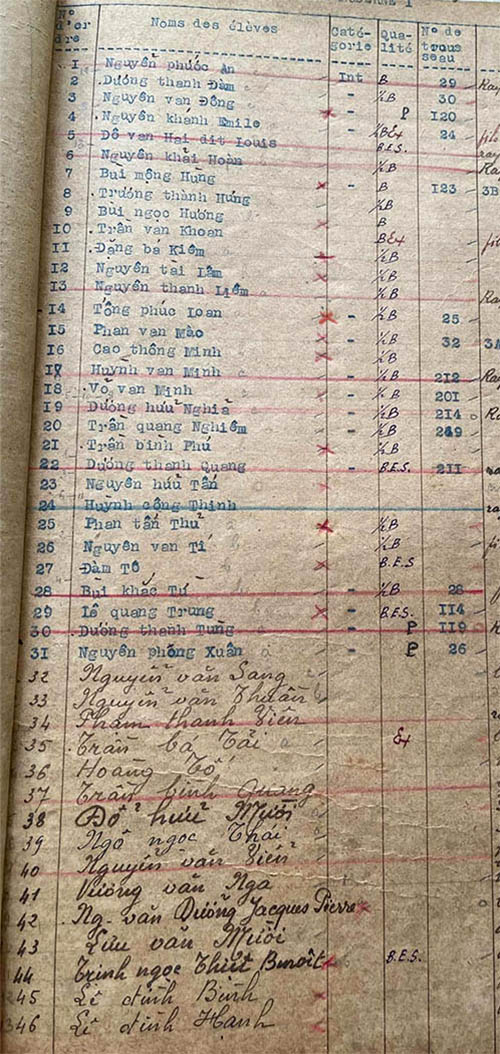 No d'or dre Noms des élèves Caté- gorie Qua- lité No de trous seau
1 Nguyễn phước An
2 Dương thanh Đàm Int B 29
3 Nguyễn van Đông - ½B 30
4 Nguyễn khánh Emile x - P 120
5 Đô van Hai dit Louis - ½BEx 24
6 Nguyễn khải Hoàn B.E.S.
7 Bùi mộng Hùng ½B
8 Trương thành Hưng x - B 123 3B
9 Bùi ngọc Hương ½B
10 Trần van Khoan B
11 Đặng bá Kiêm x BEx
12 Nguyễn tài Lâm x ½B
13 Nguyễn thanh Liêm ½B
14 Tống phúc Loan x - ½B 25
15 Phan van Mão x - ½B 32
16 Cao thông Minh x - ½B
17 Huỳnh van Minh - ½B 212
18 Võ van Minh x - ½B 201
19 Dương hữu Nghĩa - ½B 214
20 Trần quang Nghiêm - ½B 249
21 Trần bình Phú x - ½B
22 Dương thanh Quang - B.E.S. 211
23 Nguyễn hữu Tấn
24 Huỳnh công Thịnh
25 Phan tấn Thử x ½B
26 Nguyễn van Tí ½B
27 Đàm Tô x B.E.S
28 Bùi khắc Tư - ½B 28
29 Lê quang Trung x - B.E.S. 114
30 Dương thanh Tung - P 119
31 Nguyễn phông Xuân - P 26
32 Nguyễn văn Sang
33 Nguyễn văn Thuần
34 Phạm thanh Viên
35 Trần bá Tải Ex
36 Hoàng Tố
37 Trần bình Quang
38 Đỗ hữu Mười
39 Ngô ngọc Thái
40 Nguyễn văn Viễn
41 Vương văn Nga
42 Ng- văn Dưỡng Jacques Pierre x
43 Lưu văn Mười
44 Trinh ngọc Thiết Benoît x B.E.S.
45 Lê đình Bình x
46 Lê đình Hạnh x